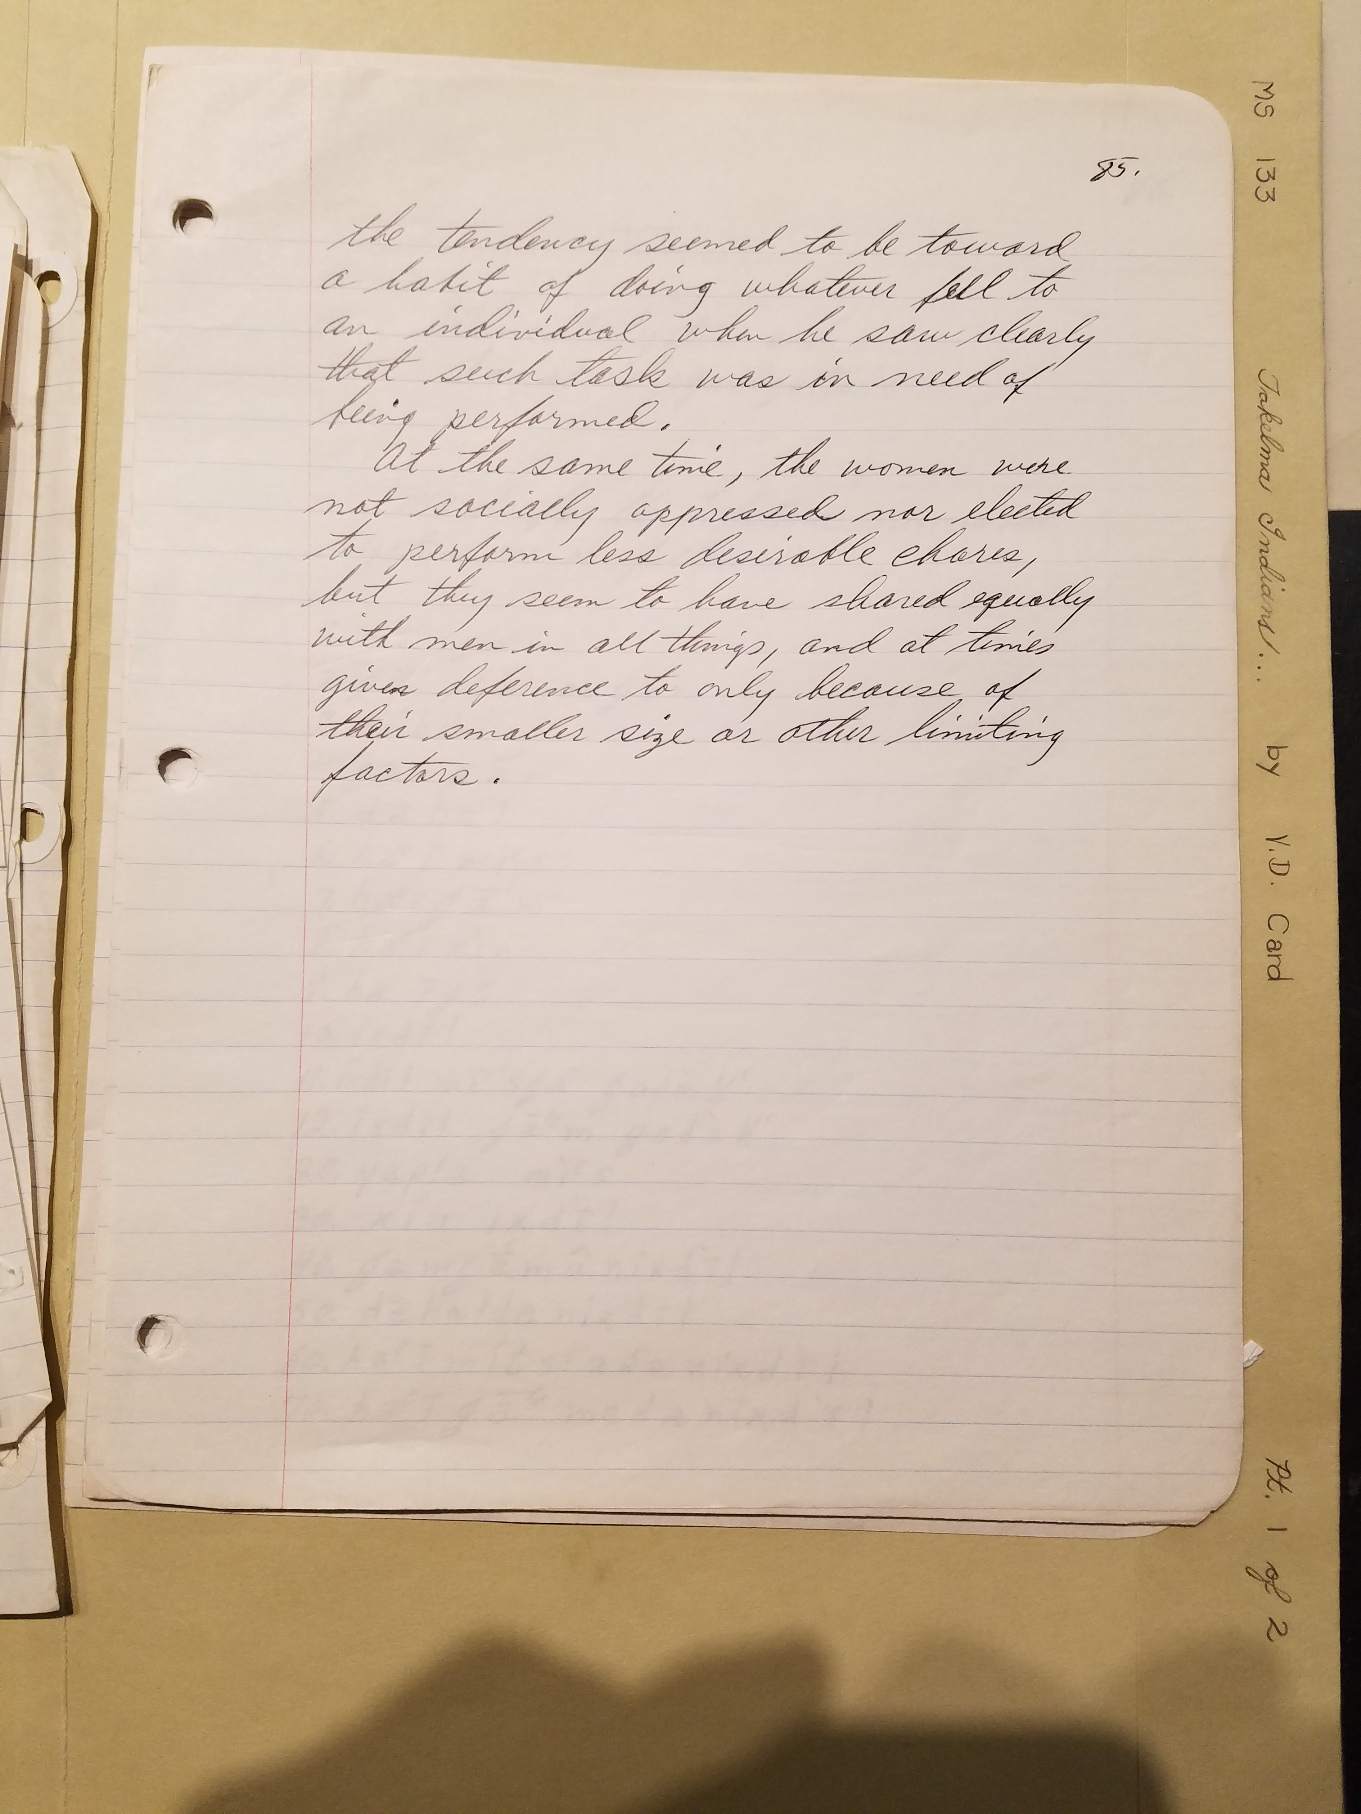 85.
the tendency seemed to be toward
a habit of doing whatever fell to
an individual when he saw clearly
that such task was in need of
being performed.
At the same time, the women were
not socially oppressed nor elected
to perform less desirable chores,
but they seem to have shared equally
with men in all things, and at times
given deference to only because of
their smaller size or other limiting
factors.
MS 133 Takelma Indians... by V.D. Card Pt. 1 of 2